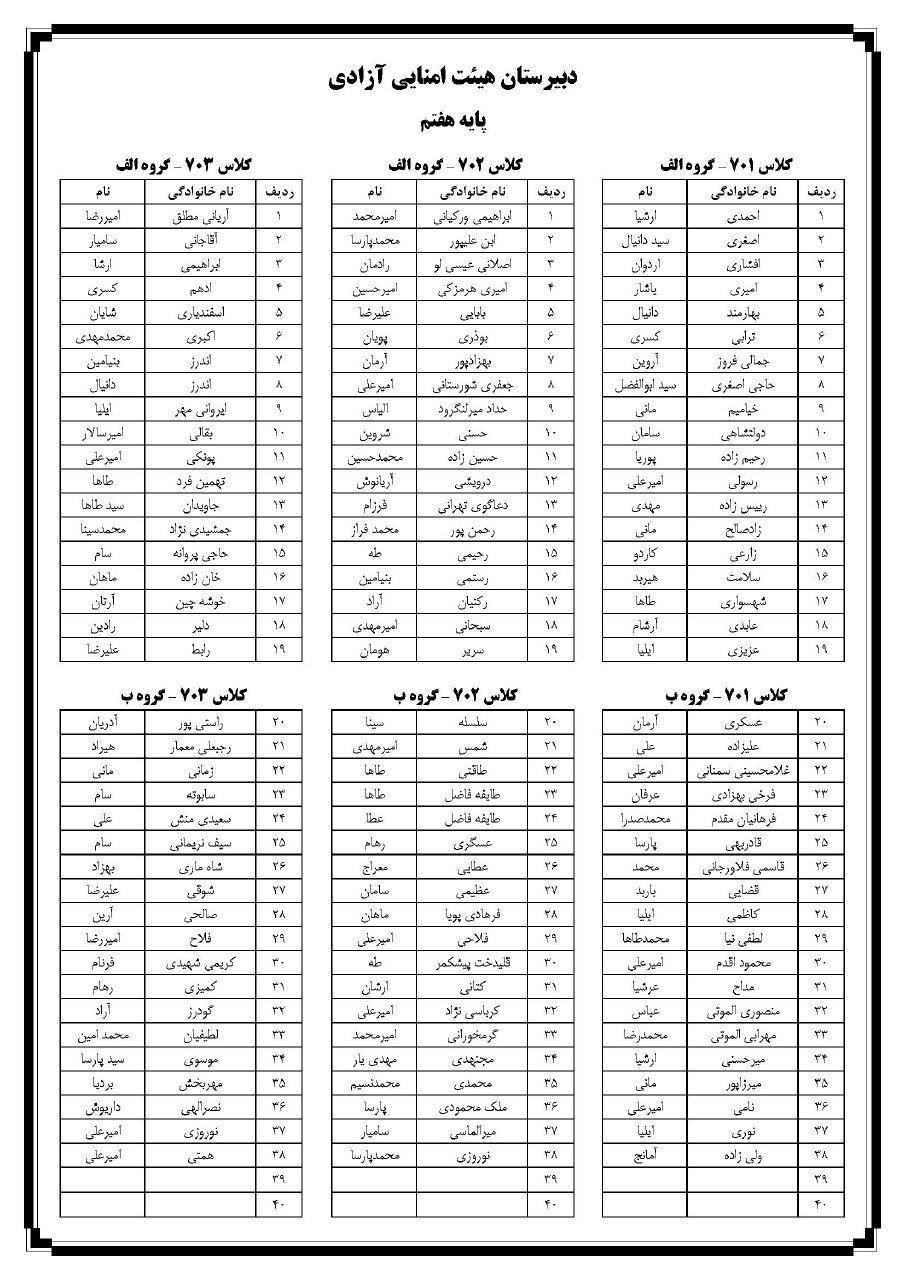 دبیرستان هیئت امنایی آزادی
پایه هفتم
کلاس ۷۰۱ - گروه الف
ردیف نام خانوادگی نام
۱ احمدی ارشیا
۲ اصغری سید دانیال
۳ افشاری اردوان
۴ امیری یاشار
۵ بهارمند دانیال
۶ ترابی کسری
۷ جمالی فروز آروین
۸ حاجی اصغری سید ابوالفضل
۹ خیامیم مانی
۱۰ دولتشاهی سامان
۱۱ رحیم زاده پوریا
۱۲ رسولی امیرعلی
۱۳ رییس زاده مهدی
۱۴ زادصالح مانی
۱۵ زارعی کاردو
۱۶ سلامت هیربد
۱۷ شهسواری طاها
۱۸ عابدی آرشام
۱۹ عزیزی ایلیا
کلاس ۷۰۲ - گروه الف
ردیف نام خانوادگی نام
۱ ابراهیمی ورکیانی امیرمحمد
۲ ابن علیپور محمدپارسا
۳ اصلانی عیسی لو رادمان
۴ امیری هرمزکی امیرحسین
۵ بابایی علیرضا
۶ بوذری پویان
۷ بهزادپور آرمان
۸ جعفری شورستانی امیرعلی
۹ حداد میرلنگرود الیاس
۱۰ حسنی شروین
۱۱ حسین زاده محمدحسین
۱۲ درویشی آریانوش
۱۳ دعاگوی تهرانی فرزام
۱۴ رحمن پور محمد فراز
۱۵ رحیمی طه
۱۶ رستمی بنیامین
۱۷ رکنیان آراد
۱۸ سبحانی امیرمهدی
۱۹ سریر هومان
کلاس ۷۰۳ - گروه الف
ردیف نام خانوادگی نام
۱ آریانی مطلق امیررضا
۲ آقاجانی سامیار
۳ ابراهیمی ارشا
۴ ادهم کسری
۵ اسفندیاری شایان
۶ اکبری محمدمهدی
۷ اندرز بنیامین
۸ اندرز دانیال
۹ ایروانی مهر ایلیا
۱۰ بقالی امیرسالار
۱۱ پونکی امیرعلی
۱۲ تهمین فرد طاها
۱۳ جاویدان سید طاها
۱۴ جمشیدی نژاد محمدسینا
۱۵ حاجی پروانه سام
۱۶ خان زاده ماهان
۱۷ خوشه چین آرتان
۱۸ دلیر رادین
۱۹ رابط علیرضا
کلاس ۷۰۱ - گروه ب
۲۰ عسکری آرمان
۲۱ علیزاده علی
۲۲ غلامحسینی سمنانی امیرعلی
۲۳ فرخی بهزادی عرفان
۲۴ فرهانیان مقدم محمدصدرا
۲۵ قادربهی پارسا
۲۶ قاسمی فلاورجانی محمد
۲۷ قضایی باربد
۲۸ کاظمی ایلیا
۲۹ لطفی نیا محمدطاها
۳۰ محمود اقدم امیرعلی
۳۱ مداح عرشیا
۳۲ منصوری الموتی عباس
۳۳ مهرابی الموتی محمدرضا
۳۴ میرحسنی ارشیا
۳۵ میرزاپور مانی
۳۶ نامی امیرعلی
۳۷ نوری ایلیا
۳۸ ولی زاده آمانج
۳۹
۴۰
کلاس ۷۰۲ - گروه ب
۲۰ سلسله سینا
۲۱ شمس امیرمهدی
۲۲ طاقتی طاها
۲۳ طایفه فاضل طاها
۲۴ طایفه فاضل عطا
۲۵ عسگری رهام
۲۶ عطایی معراج
۲۷ عظیمی سامان
۲۸ فرهادی پویا ماهان
۲۹ فلاحی امیرعلی
۳۰ قلیدخت پیشکمر طه
۳۱ کتانی ارشان
۳۲ کرباسی نژاد امیرعلی
۳۳ گرمخورانی امیرمحمد
۳۴ مجتهدی مهدی یار
۳۵ محمدی محمدنسیم
۳۶ ملک محمودی پارسا
۳۷ میرالماسی سامیار
۳۸ نوروزی محمدپارسا
۳۹
۴۰
کلاس ۷۰۳ - گروه ب
۲۰ راستی پور آدریان
۲۱ رجبعلی معمار هیراد
۲۲ زمانی مانی
۲۳ سابوته سام
۲۴ سعیدی منش علی
۲۵ سیف نریمانی سام
۲۶ شاه ماری بهزاد
۲۷ شوقی علیرضا
۲۸ صالحی آرین
۲۹ فلاح امیررضا
۳۰ کریمی شهیدی فرنام
۳۱ کمیزی رهام
۳۲ گودرز آراد
۳۳ لطیفیان محمد امین
۳۴ موسوی سید پارسا
۳۵ مهربخش بردیا
۳۶ نصرالهی داریوش
۳۷ نوروزی امیرعلی
۳۸ همتی امیرعلی
۳۹
۴۰